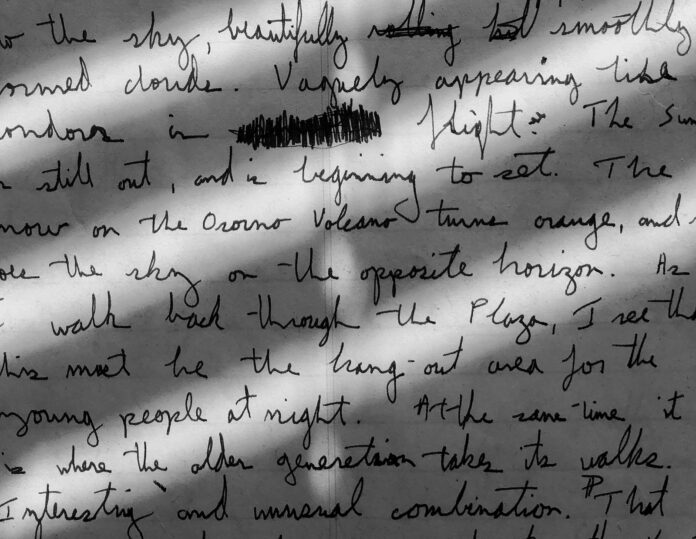 the sky, beautifully rolling but smoothly
ormed clouds. Vaguely appearing like
ondors in flight. The Sun
still out, and is beginning to set. The
now on the Osorno Volcano turns orange, and
oes the sky on the opposite horizon. As
I walk back through the Plaza, I see tha
this must be the hang-out area for the
young people at night. At the same time it
is where the older generation takes its walks.
Interesting and unusual combination. That